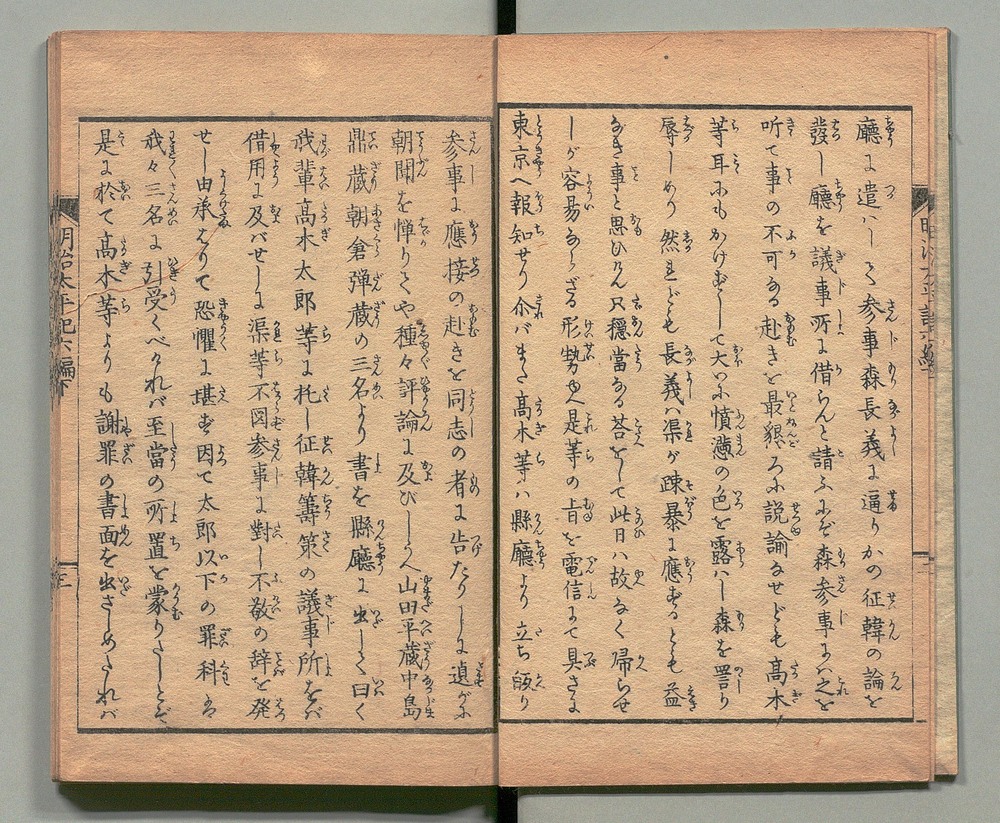 廳に遣ハして参事森長義に逼りかの征韓の論を
發し廳を議事所に借らんと請ふにぞ森参事ハ之を
听て事の不可なる赴きを最懇ろに説諭なせども髙木
等耳にもかけずして大いに憤懣の色を露ハし森を詈り
辱しめり然れども長義ハ渠が疎暴に應ずるとも益
なき事と思ひけん只穩當なる荅をして此日ハ故なく帰らせ
しが容易ならざる形勢也是等の旨を電信にて具さに
東京へ報知せり尒バまた髙木等ハ縣廳より立ち皈り
参事に應接の赴きを同志の者に告たりしに遉がに
朝聞を憚りてや種々評論に及びしうへ山田平蔵中島
鼎蔵朝倉弾蔵の三名より書を縣廳に出して曰く
我輩髙木太郎等に托し征韓籌策の議事所をバ
借用に及バせしに渠等不図参事に對し不敬の辞を発
せし由承はりて恐懼に堪ず因て太郎以下の罪科ハ
我々三名に引受くべけれバ至當の所置を蒙りたしとぞ
是に於て髙木等よりも謝罪の書面を出さしめたれバ
明治太平記六編下